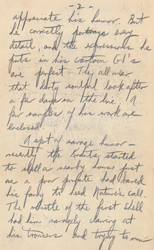 - 2 -
appreciate his humor. But
he correctly portrays every
detail, and the expressions he
puts in his cartoon GI's
are perfect. They all wear
that dirty soulful look after
a few days in the line. A
few samples of his work are
enclosed.
A spot of savage humor —
recently the krauts started
to shell a nearby and just
as a poor had eased
his fanny to heed Nature's call.
The whistle of the first shell
had him clawing at
his trousers and trying to run